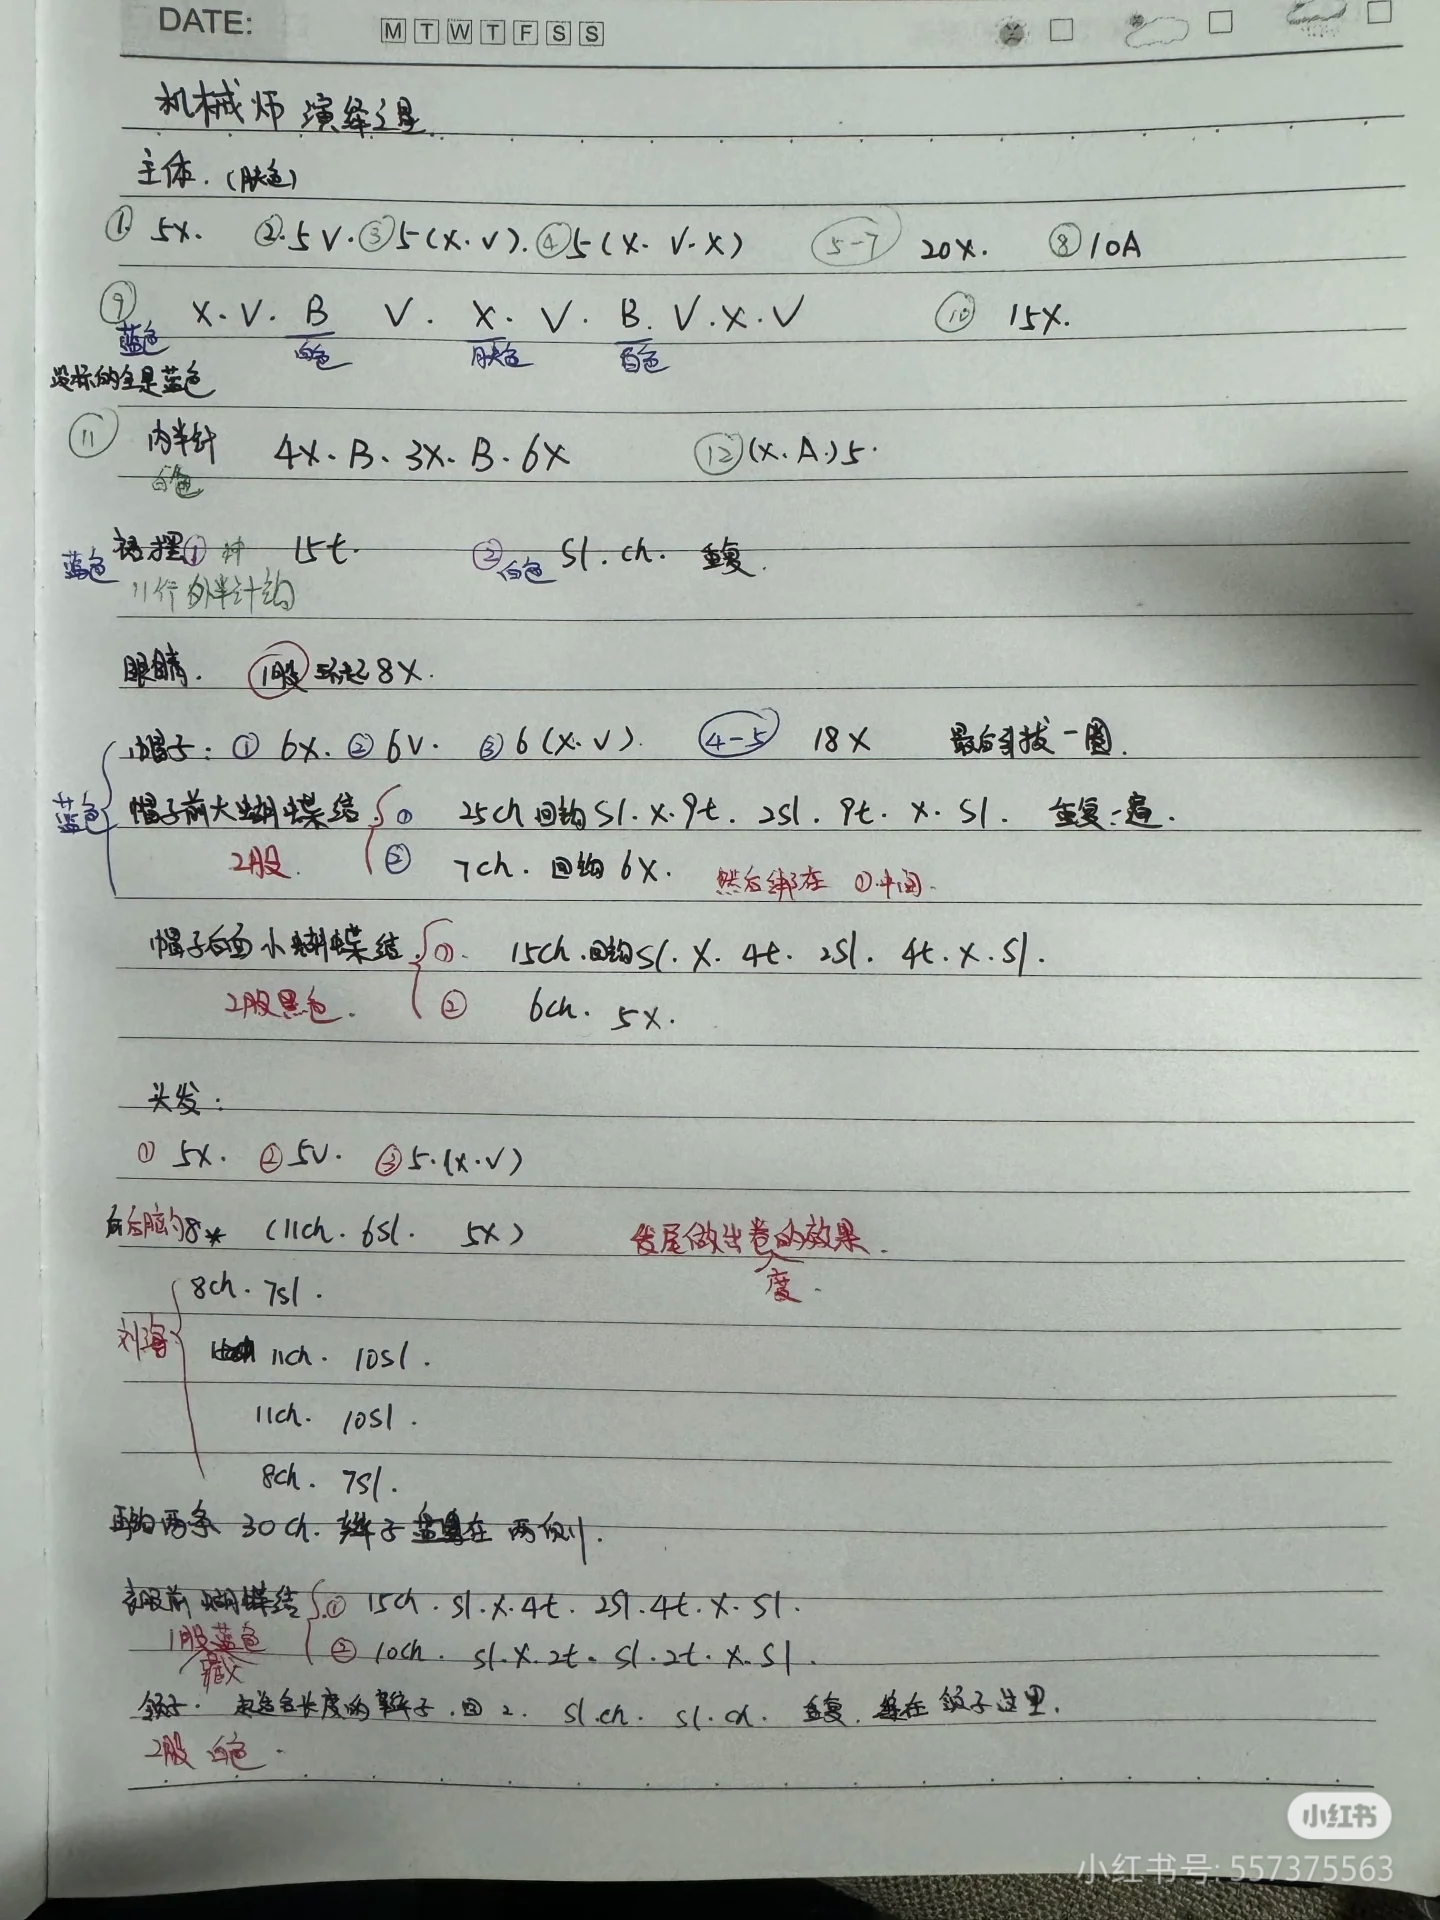 DATE: M T W T F S S
机械师 演绎之星.
主体. (肤色)
① 5X. ②. 5V. ③ 5(X.V). ④ 5(X. V. X) 5-7 20X. ⑧ 10A
⑨ X. V. B V. X. V. B. V. X. V ⑩ 15X.
蓝色 白色 肤色 白色
没标的全是蓝色
⑪ 内半针 4X. B. 3X. B. 6X ⑫ (X. A.)5.
白色
蓝色 裙摆① 15t. ② 白色 Sl. ch. 重复.
11行外半针钩
眼睛. 1股 环起8X.
帽子: ① 6X. ② 6V. ③ 6(X.V). 4-5 18X 最后引拔一圈.
蓝色 帽子前大蝴蝶结 ① 25ch 回钩 Sl. X. 9t. 2Sl. 9t. X. Sl. 重复一遍.
2股. ② 7ch. 回钩 6X. 然后绑在 ①中间.
帽子后面小蝴蝶结. ①. 15ch. 回钩 Sl. X. 4t. 2Sl. 4t. X. Sl.
2股黑色. ② 6ch. 5X.
头发:
① 5X. ② 5V. ③ 5.(X.V)
后脑的8* (11ch. 6Sl. 5X) 发尾做出卷的效果.
度.
8ch. 7Sl.
刘海 11ch. 10Sl.
11ch. 10Sl.
8ch. 7Sl.
再钩两条 30ch. 辫子 在 两侧.
衣服前蝴蝶结 ① 15ch. Sl. X. 4t. 2Sl. 4t. X. Sl.
1股蓝色 ② 10ch. Sl. X. 2t. Sl. 2t. X. Sl.
领子. 长度的辫子. 回 2. Sl. ch. Sl. ch. 重复. 在领子这里.
2股 白色.
小红书
小红书号: 557375563